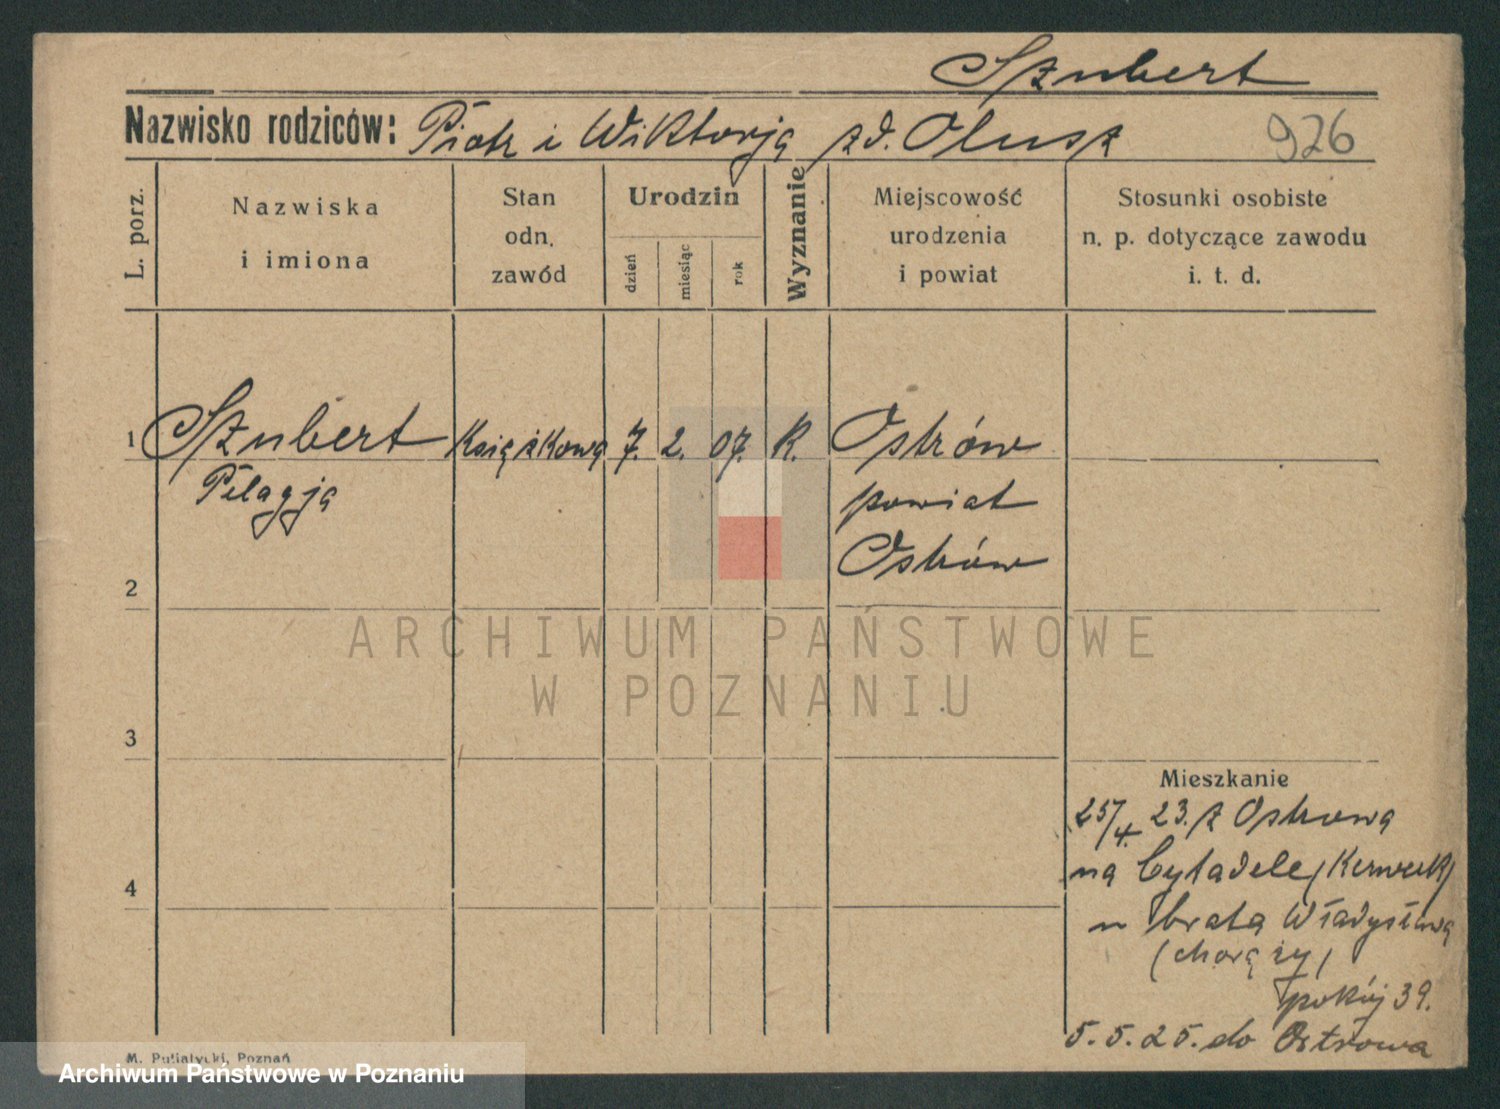 Szubert
Nazwisko rodziców: Piotr i Wiktorja zd. Olusz 926
L. porz.
Nazwiska
i imiona
Stan
odn.
zawód
Urodzin
dzień
miesiąc
rok
Wyznanie
Miejscowość
urodzenia
i powiat
Stosunki osobiste
n. p. dotyczące zawodu
i. t. d.
1 Szubert Książkowa 7. 2. 07. R. Ostrów
Pelagja powiat
Ostrów
2
3
4
Mieszkanie
25/4. 23. z Ostrowa
na Cytadele (Kernwerk)
u brata Władysława
(chorąży)
pokój 39.
5. 5. 25. do Ostrowa
M. Putiatycki, Poznań
ARCHIWUM PAŃSTWOWE
W POZNANIU
Archiwum Państwowe w Poznaniu